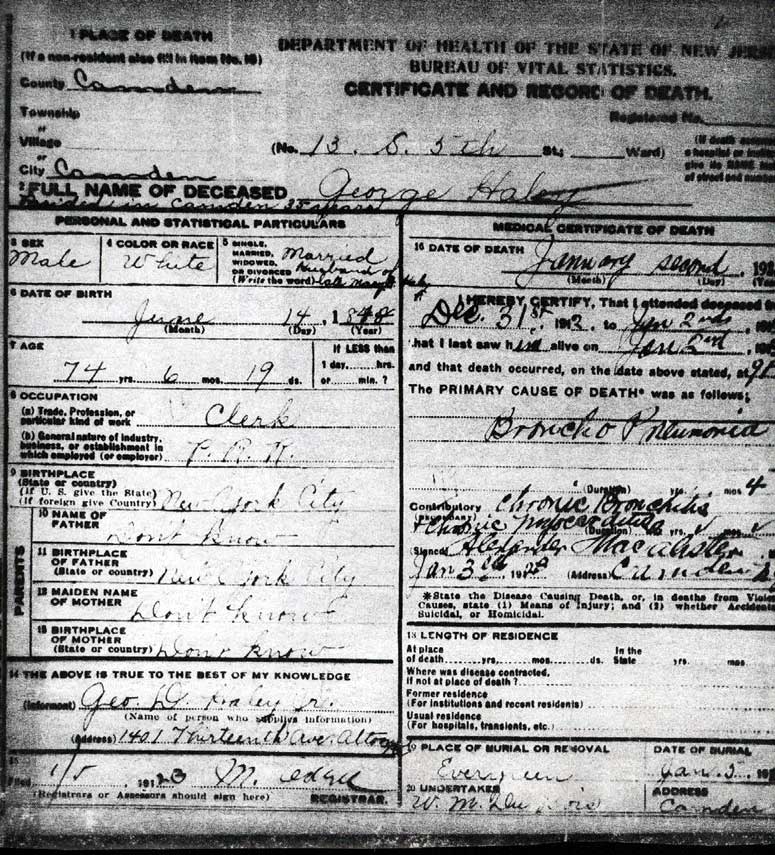 1 PLACE OF DEATH
(If a non-resident also fill in Item No. 18)
County Camden
Township
"
Village
or
City Camden
DEPARTMENT OF HEALTH OF THE STATE OF NEW JERSE
BUREAU OF VITAL STATISTICS.
CERTIFICATE AND RECORD OF DEATH.
Registered No.
(No. 13 S. 5th St.; Ward)
(If death
a hospital or
give its NAME
of street and number
2 FULL NAME OF DECEASED George Haley
Resided in Camden 35 years
PERSONAL AND STATISTICAL PARTICULARS
3 SEX
Male
4 COLOR OR RACE
White
5 SINGLE,
MARRIED,
WIDOWED,
OR DIVORCED
(Write the word)
Married
Husband of
late Mary Haley
6 DATE OF BIRTH
June 14, 18
(Month) (Day) (Year)
7 AGE
74 yrs. 6 mos. 19 ds.
If LESS than
1 day, hrs.
or min. ?
8 OCCUPATION
(a) Trade, Profession, or
particular kind of work Clerk
(b) General nature of industry,
business, or establishment in
which employed (or employer) P. R. R.
9 BIRTHPLACE
(State or country)
(If U. S. give the State)
(If foreign give Country) New York City
PARENTS
10 NAME OF
FATHER Don't know
11 BIRTHPLACE
OF FATHER
(State or country) New York City
12 MAIDEN NAME
OF MOTHER Don't know
13 BIRTHPLACE
OF MOTHER
(State or country) Don't know
14 THE ABOVE IS TRUE TO THE BEST OF MY KNOWLEDGE
(Informant) Geo. W. Haley Jr.
(Name of person who supplies information)
(Address) 1401 Thirteenth Ave. Altoona
15
Filed 1/5, 1923 M.
(Registrars or Assessors should sign here) REGISTRAR.
MEDICAL CERTIFICATE OF DEATH
16 DATE OF DEATH
January second, 192
(Month) (Day)
17 I HEREBY CERTIFY, That I attended deceased
Dec. 31st, 191 to Jan 2nd
that I last saw him alive on Jan 2nd
and that death occurred, on the date above stated, at 9
The PRIMARY CAUSE OF DEATH* was as follows:
Broncho Pneumonia
(Duration) yrs. mos 4
Contributory Chronic Bronchitis
+ Chronic Myocarditis
(Duration) yrs. mos
(Signed) Alexander Macalister
Jan 3rd 192 (Address) Camden
*State the Disease Causing Death, or, in deaths from Viole
Causes, state (1) Means of Injury; and (2) whether Accident
Suicidal, or Homicidal.
18 LENGTH OF RESIDENCE
At place
of death yrs. mos. ds.
In the
State yrs. mos
Where was disease contracted,
if not at place of death?
Former residence
(For institutions and recent residents)
Usual residence
(For hospitals, transients, etc.)
19 PLACE OF BURIAL OR REMOVAL
Evergreen
DATE OF BURIAL
Jan. 5, 19
20 UNDERTAKER
W. M.
ADDRESS
Camden